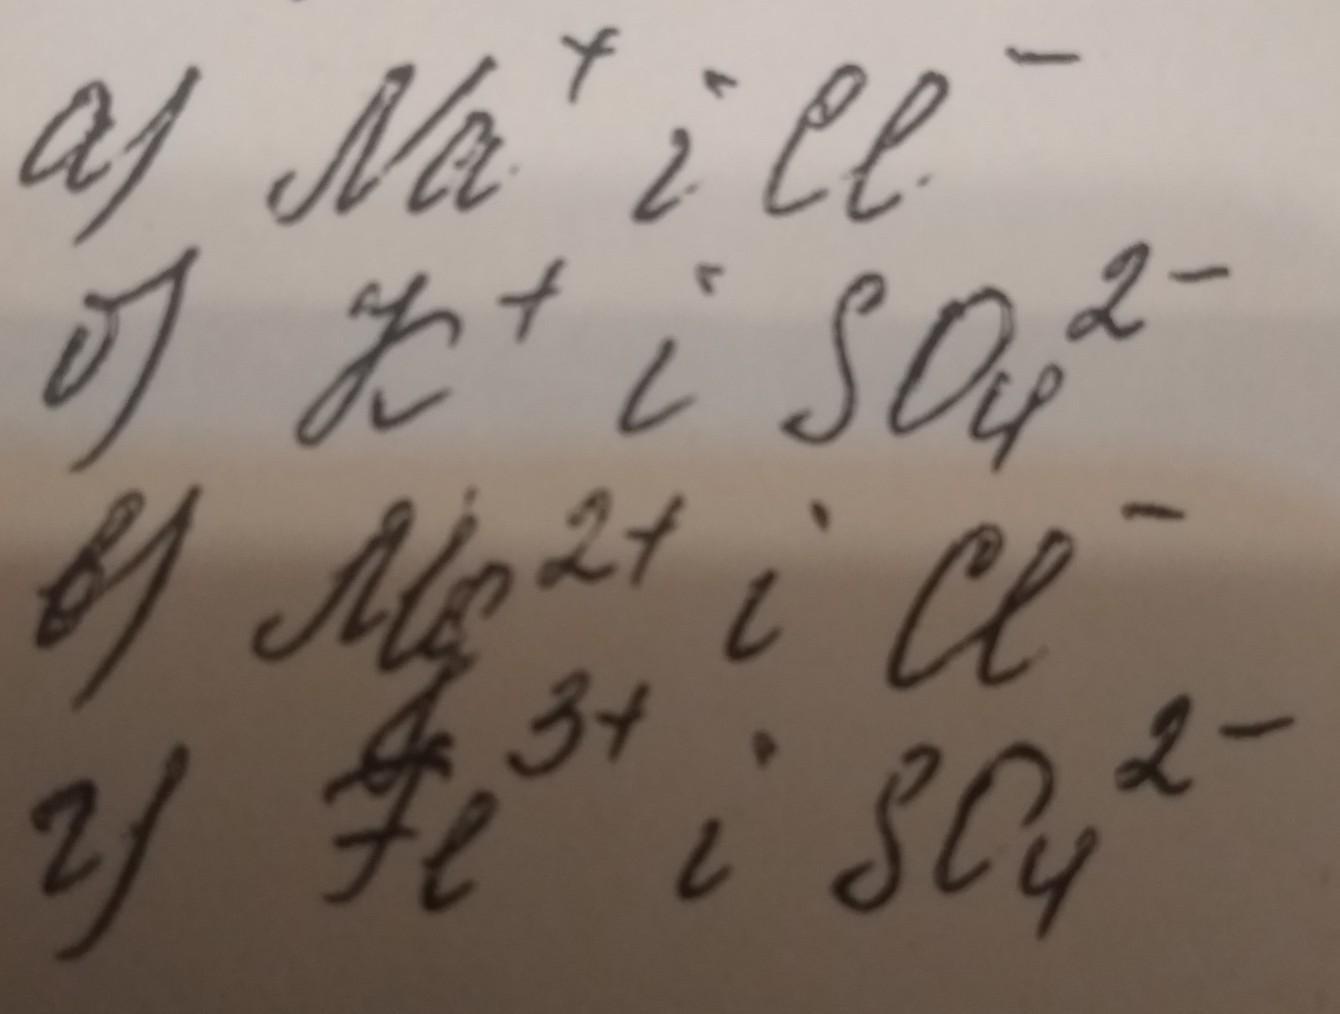 а) Na⁺ і Cl⁻
б) K⁺ і SO₄²⁻
в) Mg²⁺ і Cl⁻
г) Fe³⁺ і SO₄²⁻